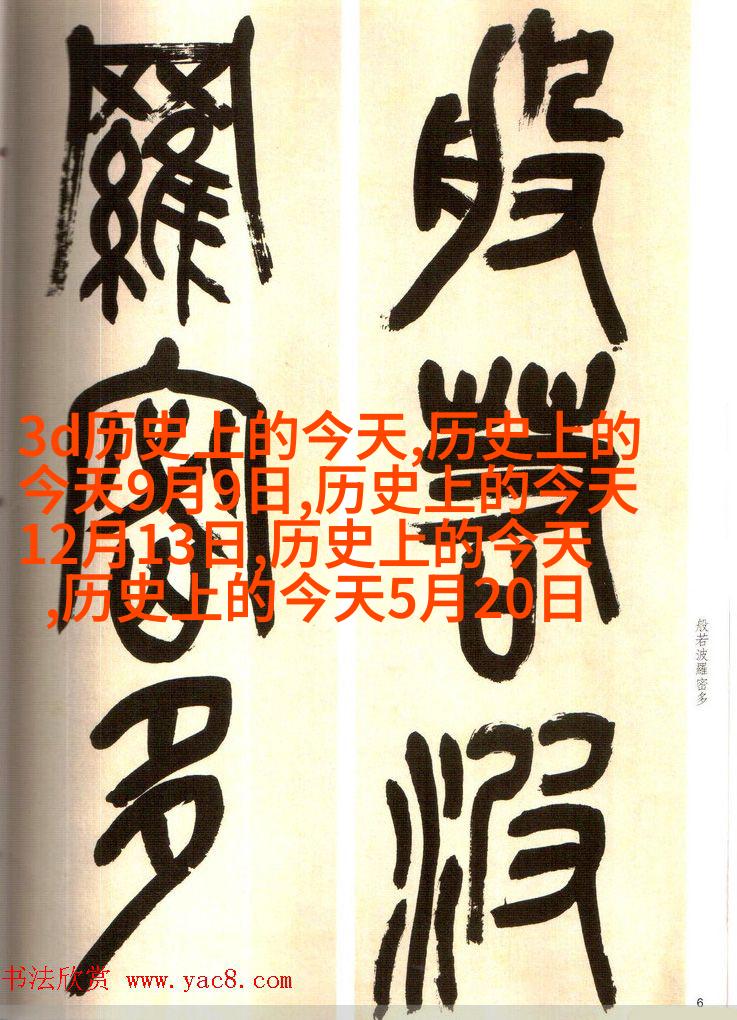 般若波
羅密多
3d历史上的今天,历史上的
今天9月9日,历史上的今天
12月13日,历史上的今天
,历史上的今天5月20日
般若波羅密多
书法欣赏 www.yac8.com
6